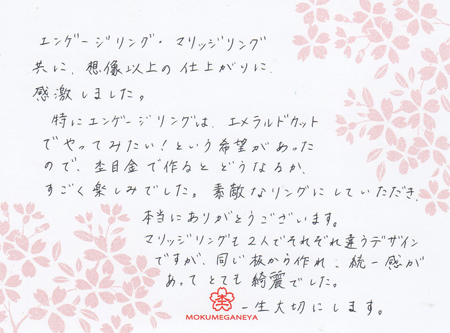 エンゲージリング・マリッジリング
共に、想像以上の仕上がりに、
感激しました。
特にエンゲージリングは、エメラルドカット
でやってみたい！という希望があった
ので、杢目金で作るとどうなるか、
すごく楽しみでした。素敵なリングにしていただき、
本当にありがとうございます。
マリッジリングも2人でそれぞれ違うデザイン
ですが、同じ板から作れ、統一感が
あってとても綺麗でした。
一生大切にします。
杢
MOKUMEGANEYA